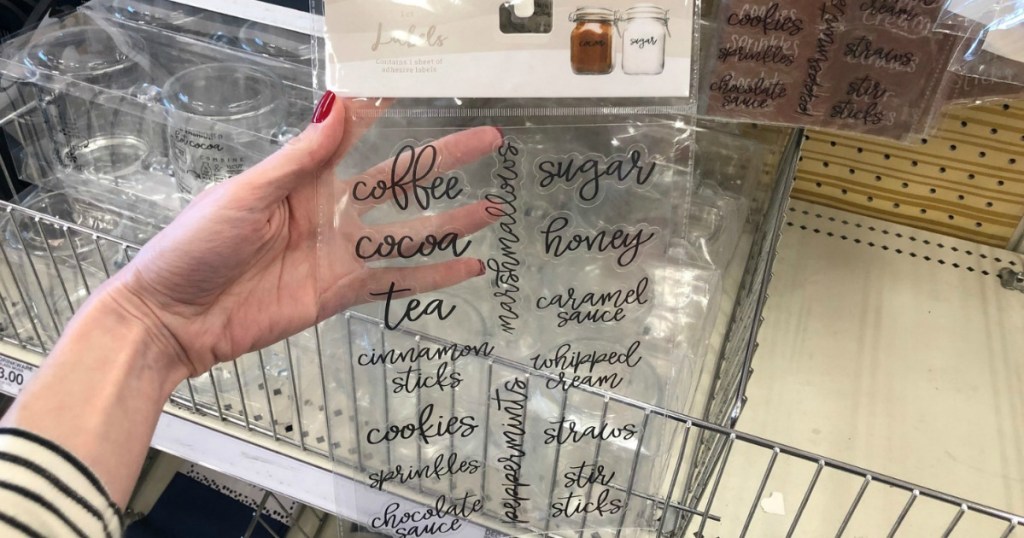 Labels
Contains 1 sheet of
adhesive labels
cocoa
sugar
coffee
cocoa
tea
cinnamon
sticks
cookies
sprinkles
chocolate
sauce
marshmallows
peppermints
sugar
honey
caramel
sauce
whipped
cream
straws
stir
sticks
cookies
sprinkles
chocolate
sauce
peppermints
cream
straws
stir
sticks
cocoa
3.00